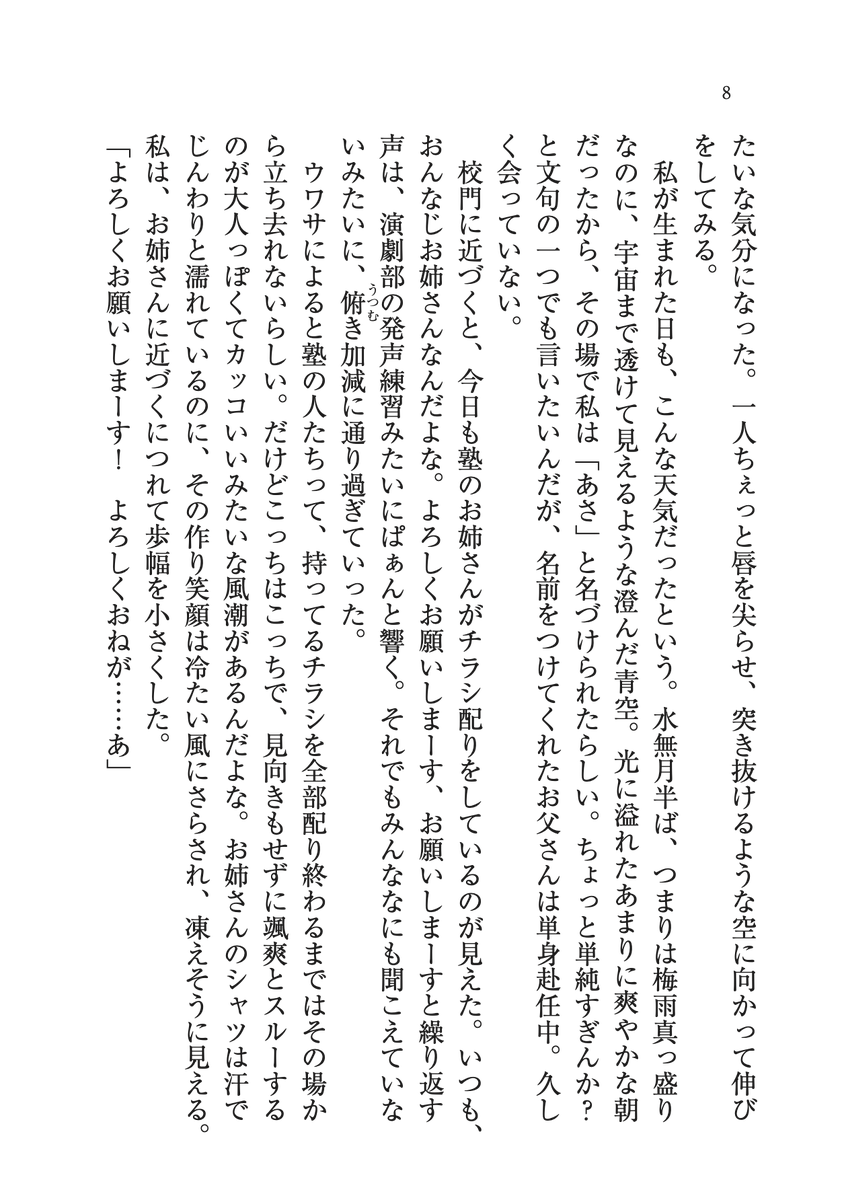 8
たいな気分になった。一人ちぇっと唇を尖らせ、突き抜けるような空に向かって伸び
をしてみる。
　私が生まれた日も、こんな天気だったという。水無月半ば、つまりは梅雨真っ盛り
なのに、宇宙まで透けて見えるような澄んだ青空。光に溢れたあまりに爽やかな朝
だったから、その場で私は「あさ」と名づけられたらしい。ちょっと単純すぎんか？
と文句の一つでも言いたいんだが、名前をつけてくれたお父さんは単身赴任中。久し
く会っていない。
　校門に近づくと、今日も塾のお姉さんがチラシ配りをしているのが見えた。いつも、
おんなじお姉さんなんだよな。よろしくお願いしまーす、お願いしまーすと繰り返す
声は、演劇部の発声練習みたいにぱぁんと響く。それでもみんななにも聞こえていな
いみたいに、俯き加減に通り過ぎていった。
うつむ
　ウワサによると塾の人たちって、持ってるチラシを全部配り終わるまではその場か
ら立ち去れないらしい。だけどこっちはこっちで、見向きもせずに颯爽とスルーする
のが大人っぽくてカッコいいみたいな風潮があるんだよな。お姉さんのシャツは汗で
じんわりと濡れているのに、その作り笑顔は冷たい風にさらされ、凍えそうに見える。
私は、お姉さんに近づくにつれて歩幅を小さくした。
「よろしくお願いしまーす！　よろしくおねが……あ」